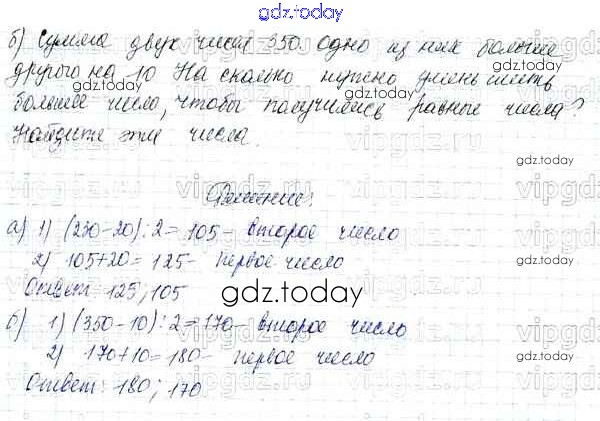 gdz.today
б) Сумма двух чисел 350 одно из них больше
другого на 10 На сколько нужно уменьшить
большее число, чтобы получились равные числа?
Найдите эти числа.
gdz.today
Решение:
а) 1) (230-20):2=105- второе число
2) 105+20=125- первое число
Ответ: 125; 105
gdz.today
б) 1) (350-10):2=170- второе число
2) 170+10=180- первое число
Ответ: 180; 170
gdz.today